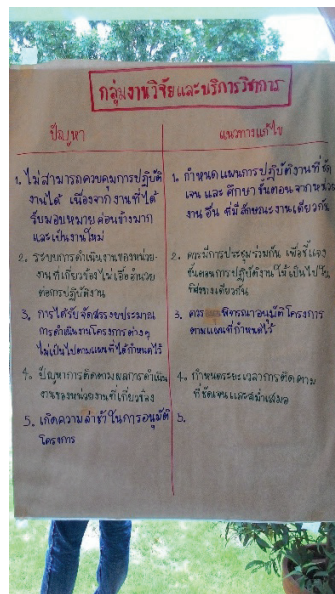 กลุ่มงานวิจัยและบริการวิชาการ
ปัญหา
1. ไม่สามารถควบคุมการปฏิบัติ
งานได้ เนื่องจากงานที่ได้
รับมอบหมายค่อนข้างมาก
และเป็นงานใหม่
2. ระบบการดำเนินงานของหน่วย
งานที่เกี่ยวข้องไม่เอื้ออำนวย
ต่อการปฏิบัติงาน
3. การได้รับจัดสรรงบประมาณ
การดำเนินงานโครงการต่างๆ
ไม่เป็นไปตามแผนที่ได้กำหนดไว้
4. ปัญหาการติดตามผลการดำเนิน
งานของหน่วยงานที่เกี่ยวข้อง
5. เกิดความล่าช้าในการอนุมัติ
โครงการ
แนวทางแก้ไข
1. กำหนดแผนการปฏิบัติงานที่ชัด
เจน และศึกษาขั้นตอนจากหน่วย
งานอื่น ที่มีลักษณะงานเดียวกัน
2. ควรมีการประชุมร่วมกัน เพื่อชี้แจง
ขั้นตอนการปฏิบัติงานให้เป็นไปใน
ทิศทางเดียวกัน
3. ควรพิจารณาอนุมัติโครงการ
ตามแผนที่กำหนดไว้
4. กำหนดระยะเวลาการติดตาม
ที่ชัดเจนและสม่ำเสมอ
5.